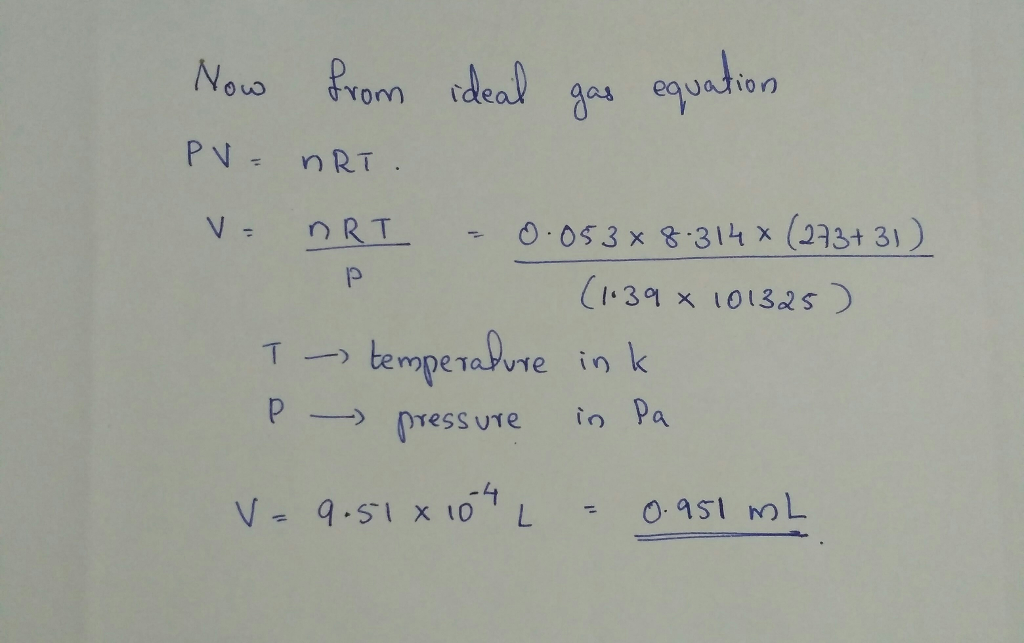 Now from ideal gas equation
PV = nRT .
V = nRT / P = 0.053 x 8.314 x (273+31) / (1.39 x 101325)
T → temperature in k
P → pressure in Pa
V = 9.51 x 10⁻⁴ L = 0.951 mL.